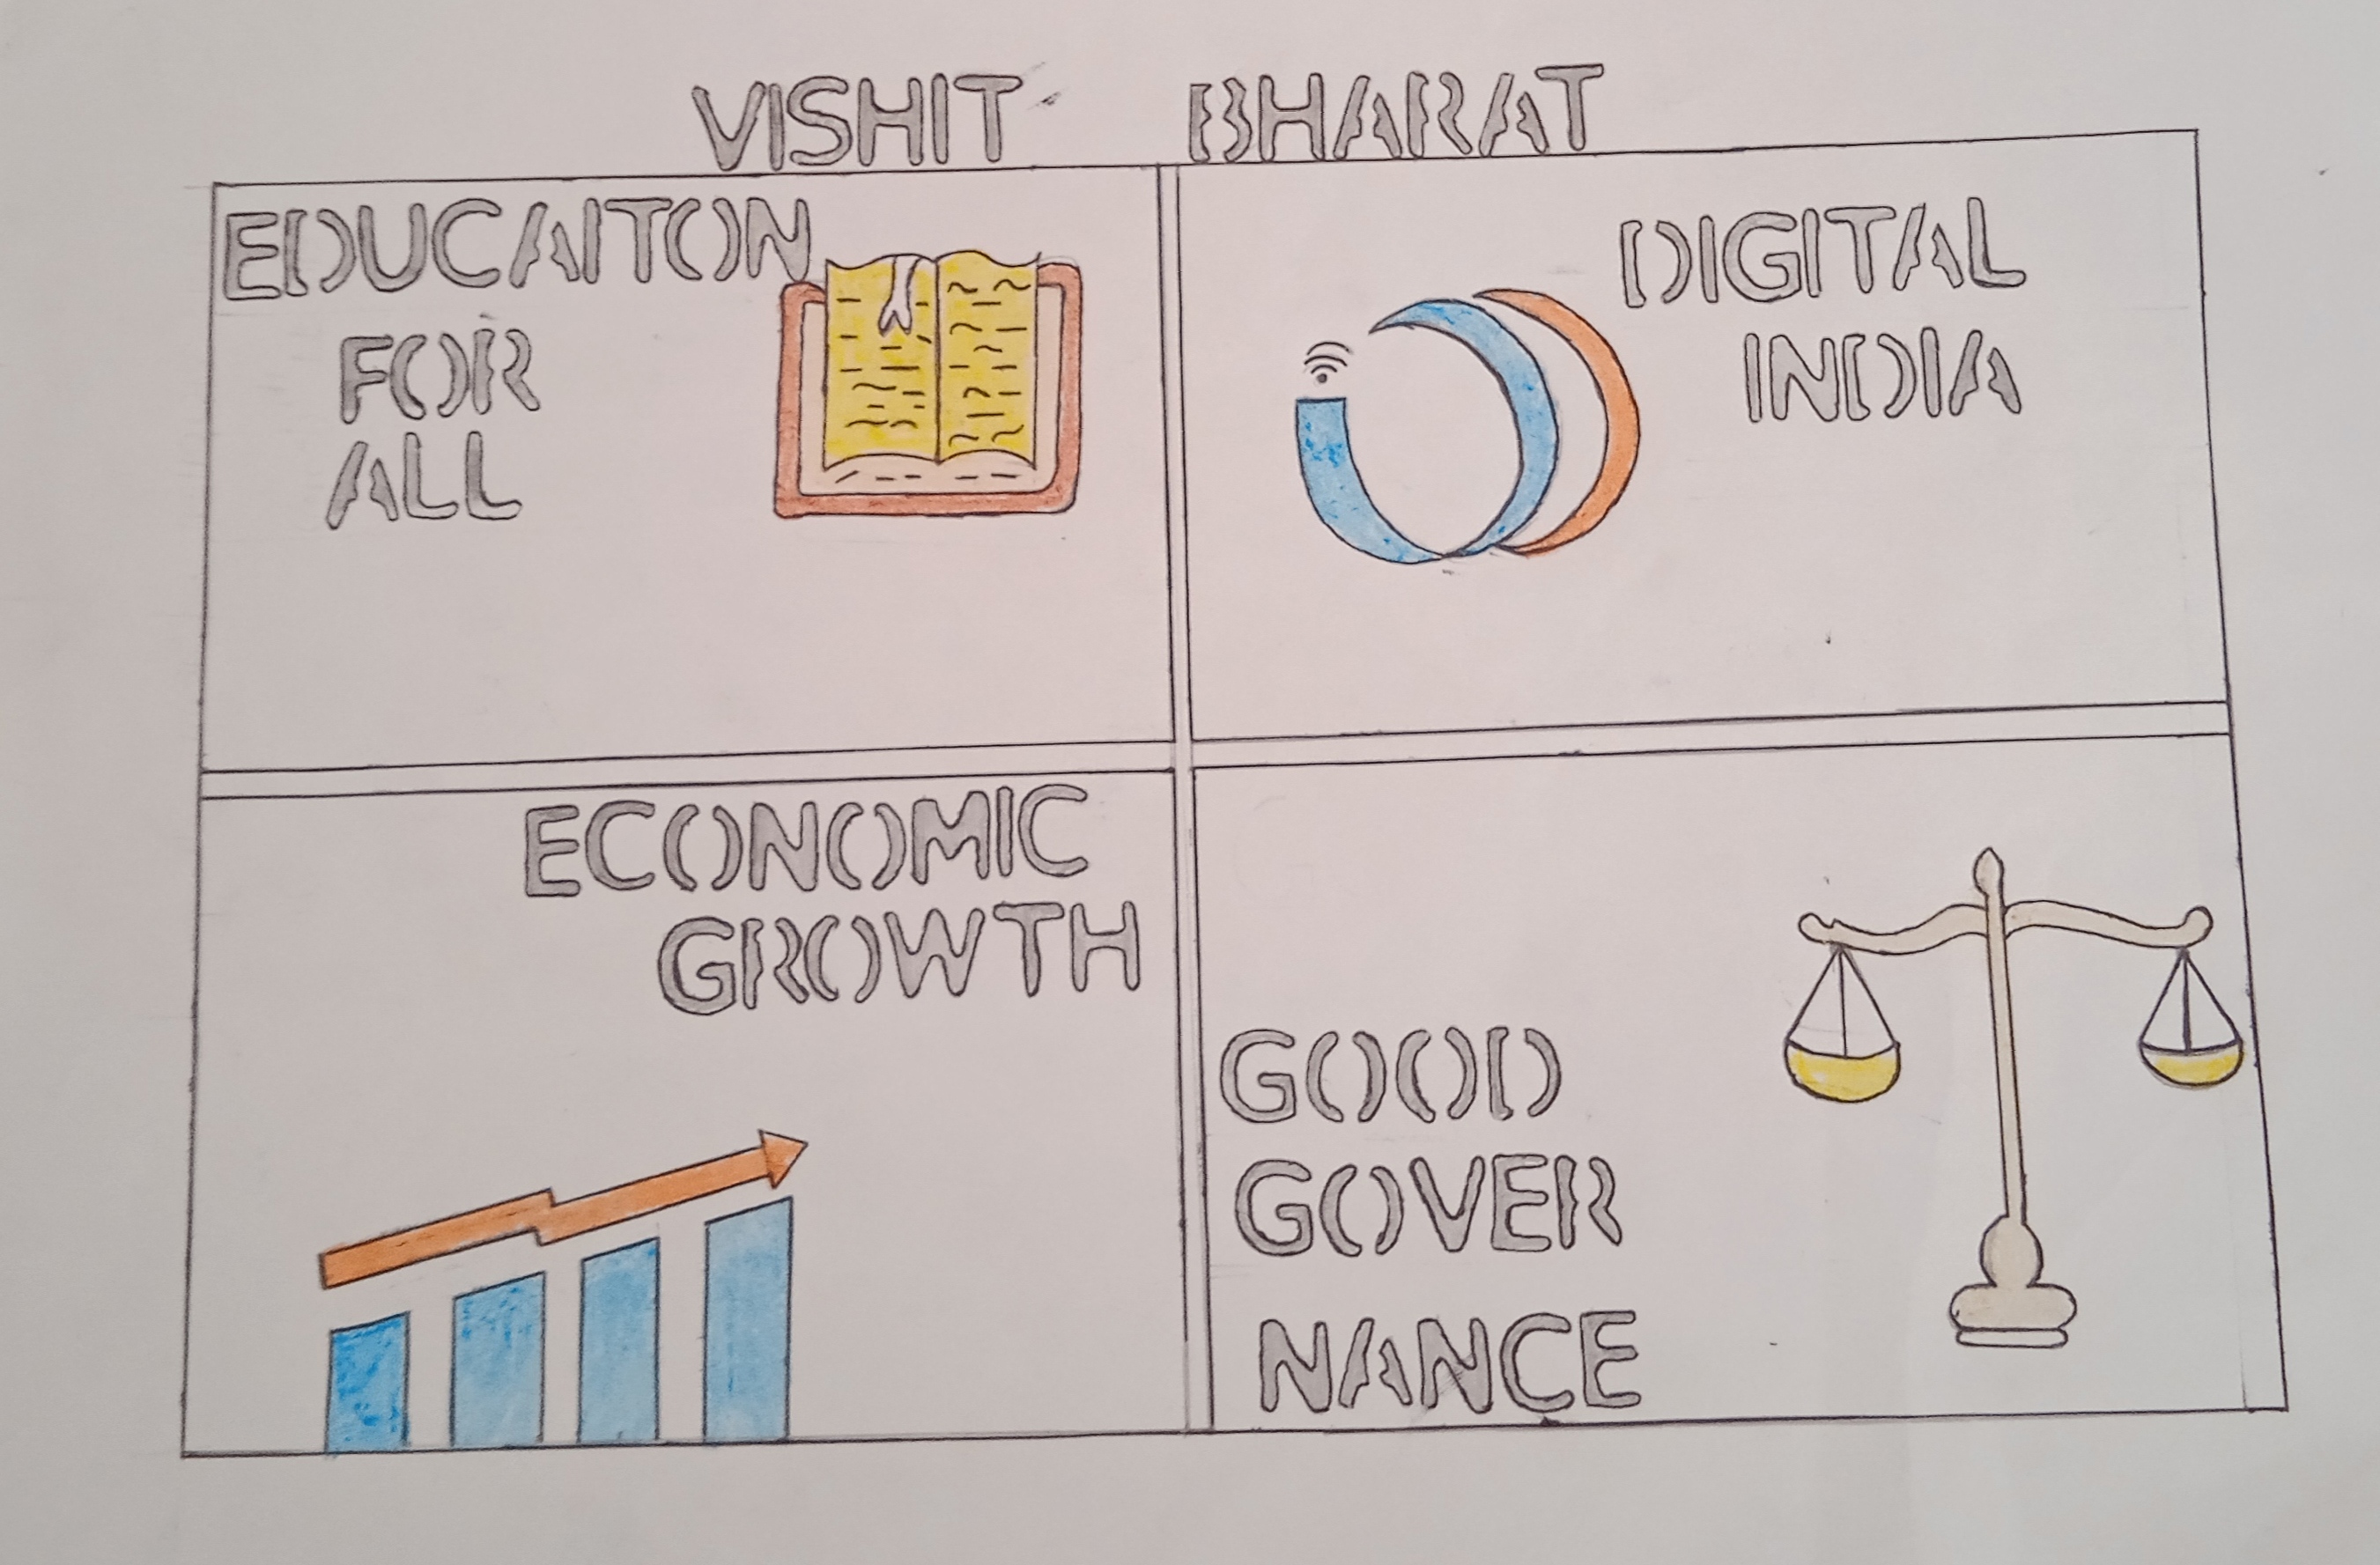 VISHIT BHARAT
EDUCAITON
FOR
ALL
DIGITAL
INDIA
ECONOMIC
GROWTH
GOOD
GOVER
NANCE